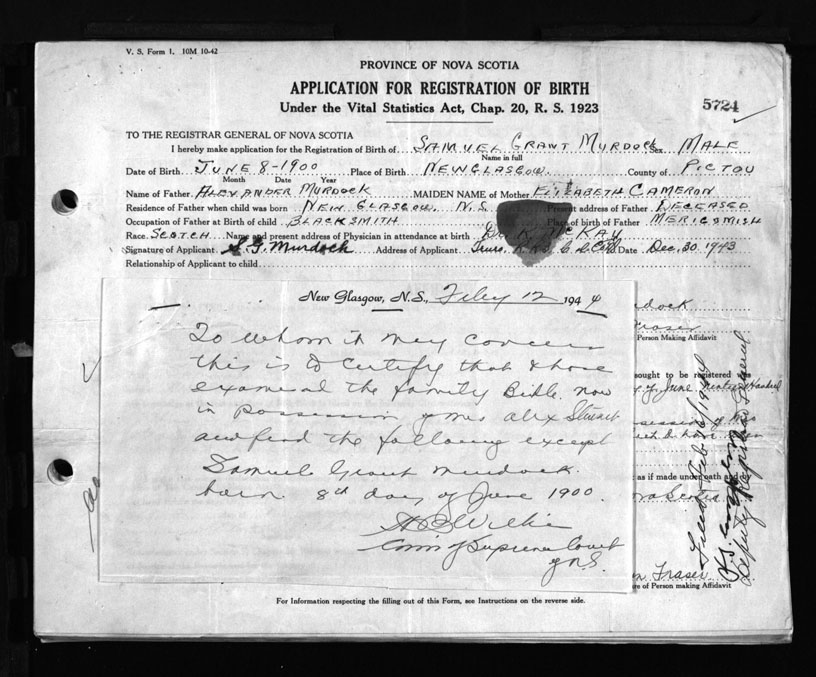 V. S. Form 1. 10M 10-42
PROVINCE OF NOVA SCOTIA
APPLICATION FOR REGISTRATION OF BIRTH
Under the Vital Statistics Act, Chap. 20, R. S. 1923
5724
TO THE REGISTRAR GENERAL OF NOVA SCOTIA
I hereby make application for the Registration of Birth of SAMUEL GRANT MURDOCK Sex MALE
Name in full
Date of Birth JUNE 8-1900 Place of Birth NEW GLASGOW County of PICTOU
Month Date Year
Name of Father ALEXANDER MURDOCK MAIDEN NAME of Mother ELIZABETH CAMERON
Residence of Father when child was born NEW GLASGOW, N.S. Present address of Father DECEASED
Occupation of Father at Birth of child BLACKSMITH Place of birth of Father MERIGOMISH
Race SCOTCH Name and present address of Physician in attendance at birth McKAY
Signature of Applicant S. G. Murdock Address of Applicant Truro, Date Dec. 30. 1943
Relationship of Applicant to child
New Glasgow, N.S., Feby 12 1944
To whom it May Concern
this is to Certify that I have
examined the family Bible now
in possession of Mrs Alex Stewart
and find the following except
Samuel Grant Murdock
born 8th day of June 1900.
Com of Supreme Court
of N.S.
Person Making Affidavit
sought to be registered was
of June
as if made under oath and by
Nova Scotia
Fraser
of Person making Affidavit
Filed Feb 16/1944
Deputy Registrar General
For Information respecting the filling out of this Form, see Instructions on the reverse side.